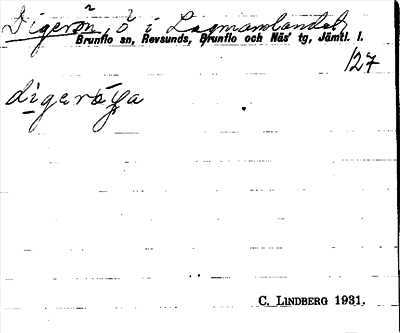 Digerön, ö i Locknesundet
Brunflo sn, Revsunds, Brunflo och Näs' tg, Jämtl. l.
127
digeröɳa
C. LINDBERG 1931.